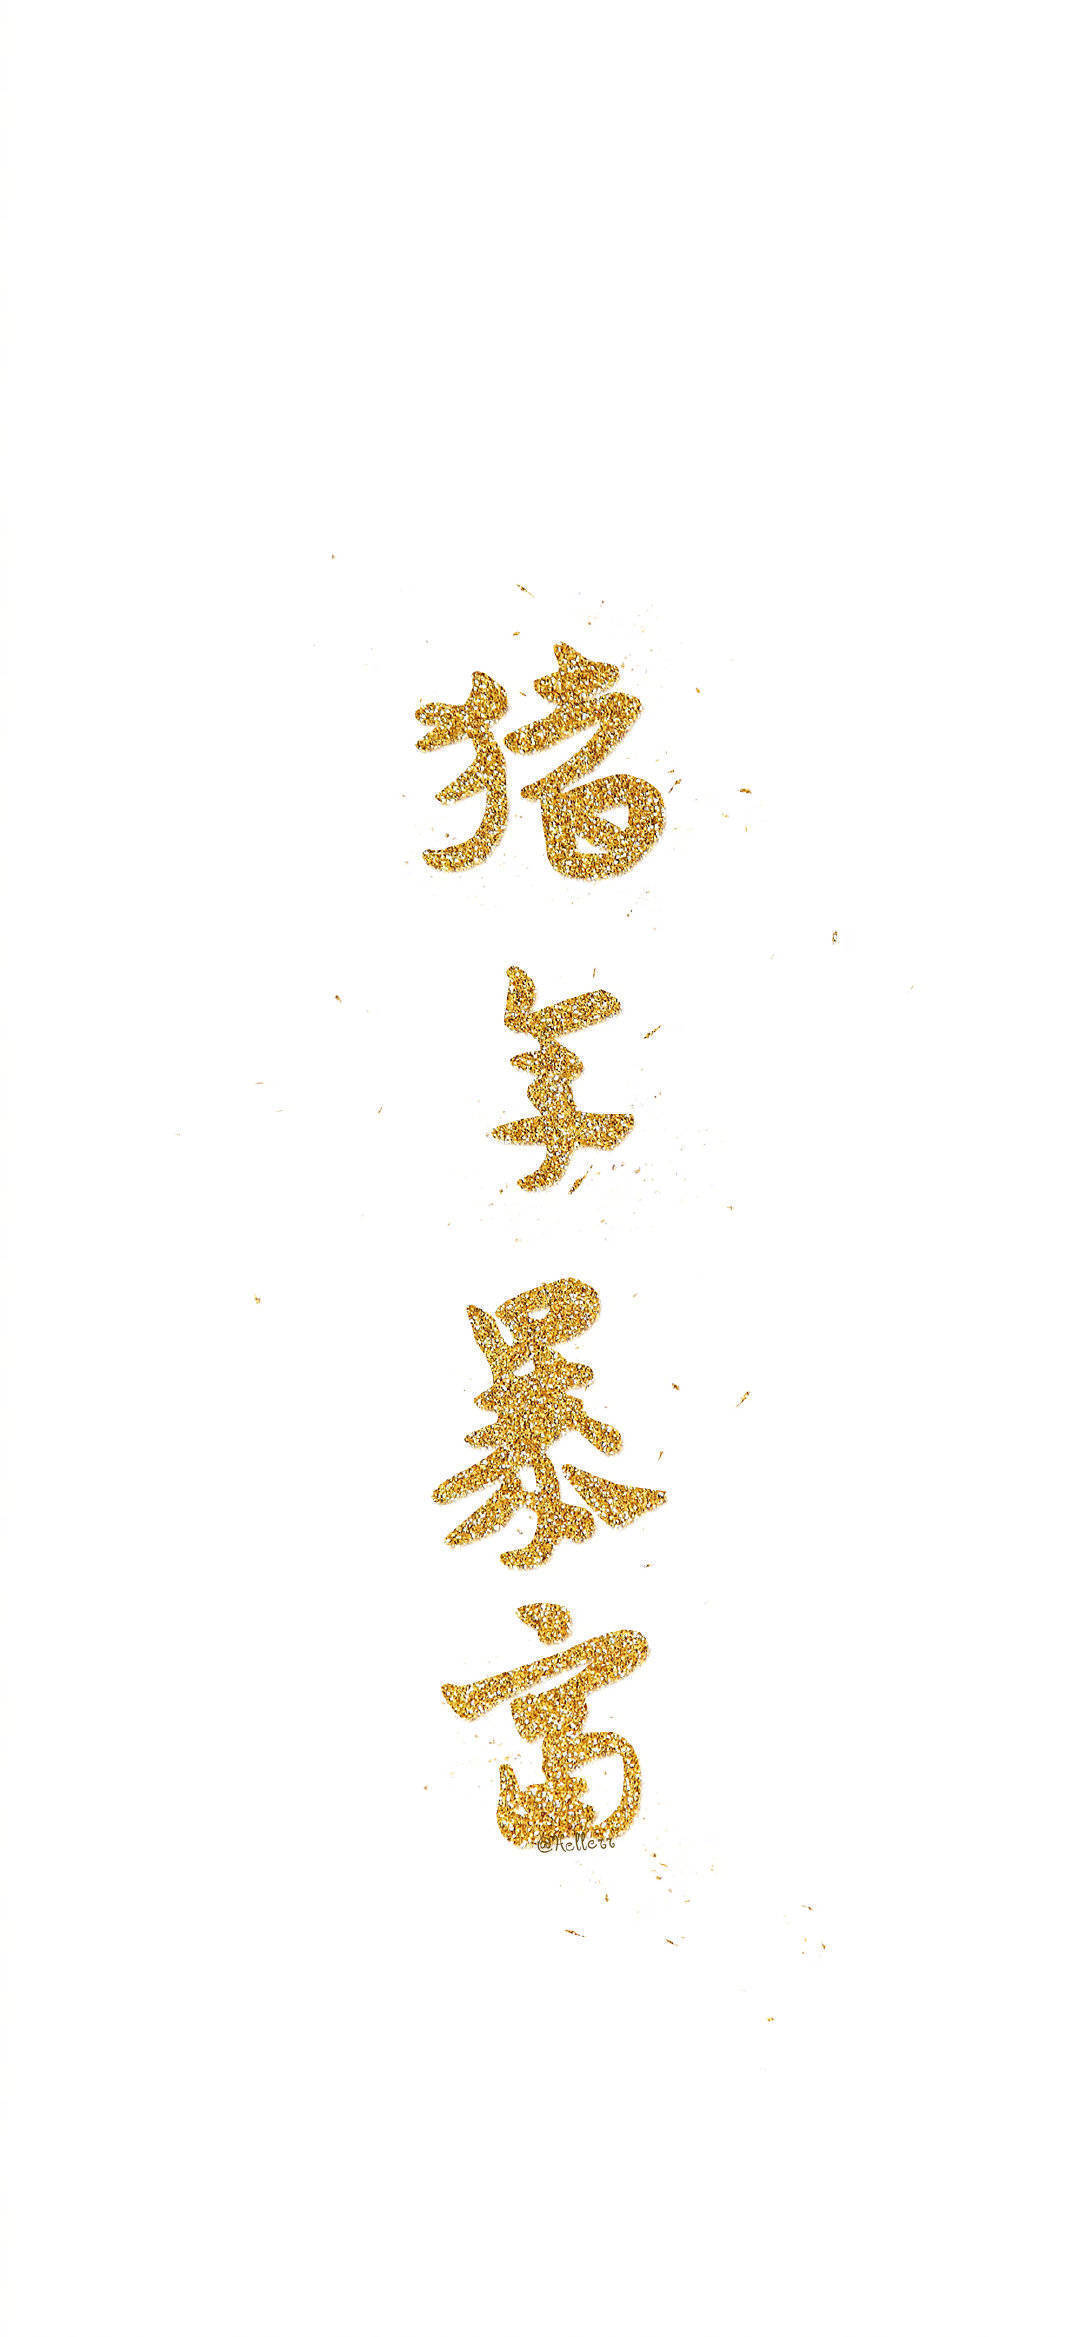 猪年暴富
@Hellell